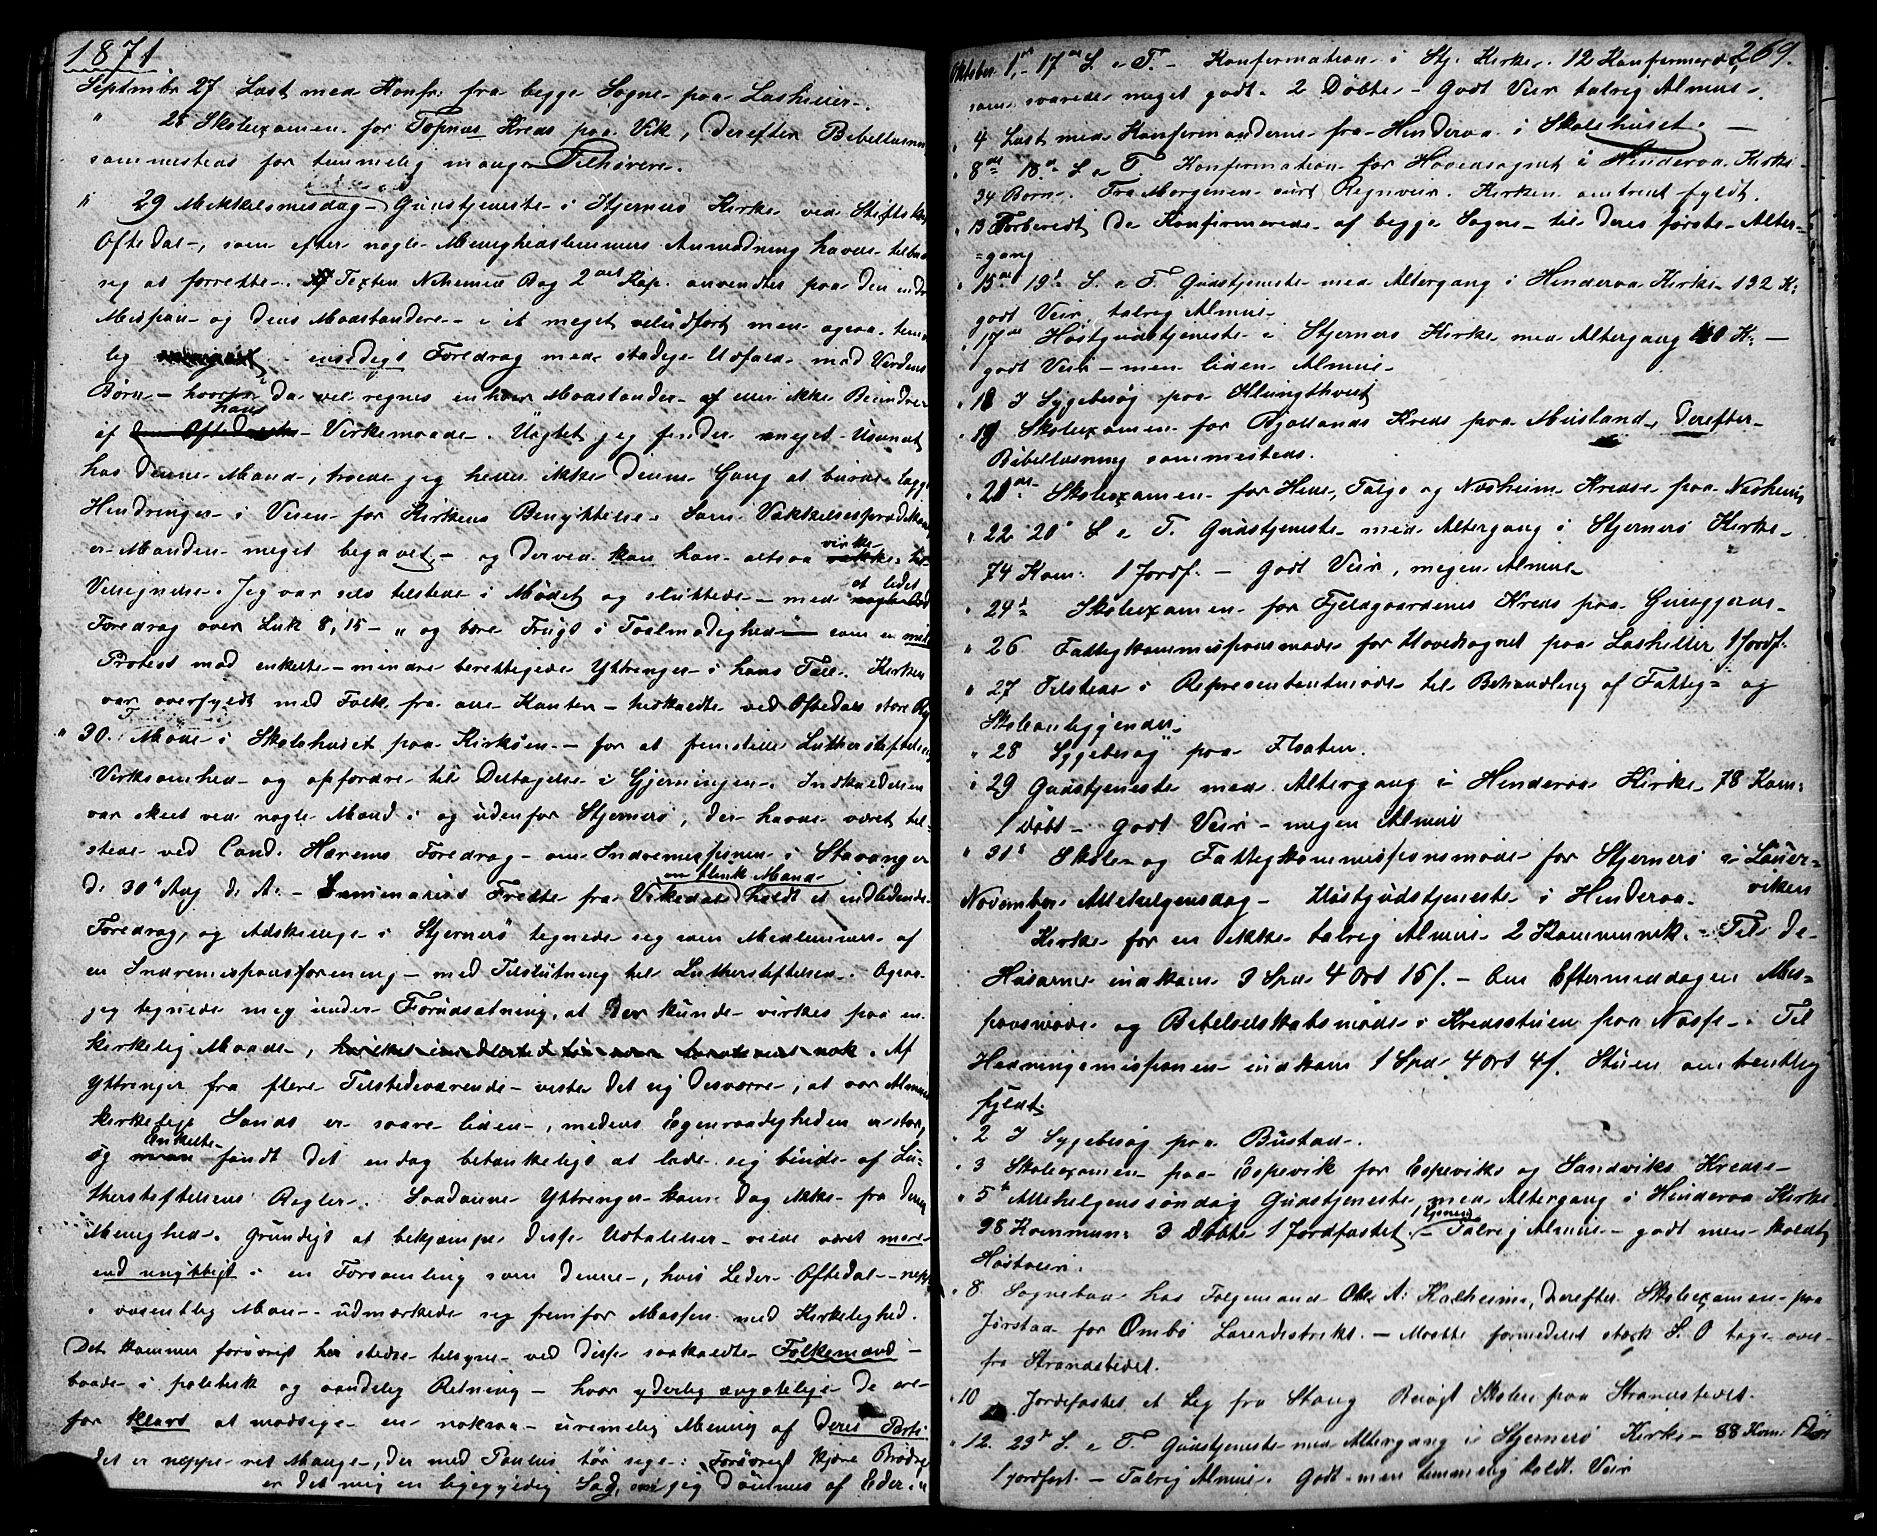 1871.
Septmbr 27 Læst med Konfr. fra begge Sogne paa Lashiller.
" 28 Skoleexamen for Topnæs Kreds paa Vik, derefter Bibellæsning
sammesteds for temmelig mange Tilhørere.
" 29 Mikkelsmesdag Gudstjeneste i Stjernerö Kirke ved Stiftskap
Oftedal, som efter nogle Menighedslemmers Anmodning havde tilbudt
sig at forrette. Texten Nehemiæ Bog 2det Kap. anvendtes paa den indre
Mission og dens Modstandere i et meget veludført men ogsaa teme
lig ensidigt Foredrag med stadige Udfald mod Verdens
Børn – hvortil da vel regnes enhver Modstander af eller ikke Beundrer
af hans Virkemaade. Uagtet jeg finder meget Usundt
hos denne Mand, troede jeg heller ikke denne Gang at burde lægge
Hindringer i Veien for Kirkens Benyttelse. Som Vækkelsesprædikant
er Manden meget begavet – og derved kan han altsaa virke til
Velsignelse. Jeg var selv tilstede i Mødet og sluttede – med et lidet
Foredrag over Luk 8, 15 – „ og bære Frugt i Taalmodighed – som en mild
Protest mod enkelte – mindre berettigede Yttringer i hans Tale. Kirken
var overfyldt med Folk fra alle Kanter – hidkaldte ved Oftedals store Ry
" 30. Møde i Skolehuset paa Kirkøen – for at fremstille Lutherstiftelsens
Virksomhed og opfordre til Deltagelse i Gjerningen. Indkaldelsen
var skeet ved nogle Mænd i og udenfor Stjernerö, der havde været til-
stede ved Cand. Hærems Foredrag om Indremissionen i Stavanger
d. 30t Aug d. A. – Seminarist Fredte fra Vikedal en flink Mand holdt et indledende
Foredrag, og Adskillige i Stjernerö tegnede sig som Medlemmer af
en Indremissionsforening – med Tilslutning til Lutherstiftelsen. Ogsaa
jeg tegnede mig under Forudsætning, at der kunde virkes paa en
kirkelig Maade, . Af
Yttringer fra flere Tilstedeværende viste det sig desværre, at vor Almues
kirkelige Sands er saare liden, medens Egenraadigheden er stor,
og enkelte fandt det endog betænkeligt at lade sig binde af Lu-
therstiftelsens Regler. Saadanne Yttringer kom dog ikke fra denne
Menighed. Grundigt at bekjæmpe disse Udtalelser vilde været mere
end unyttigt i en Forsamling som denne, hvis Leder Oftedal neppe
i væsentlig Mon udmærkede sig fremfor Massen med Kirkelighed.
Det kommer forøvrigt her stedse tilsyne ved disse saakaldte Folkemænd –
baade i politisk og aandelig Retning – hvor yderlig ængstelige de ere
for klart at modsige en noksaa urimelig Mening af deres Parti
det er neppe ret Mange, der med Paulus tør sige: „Forøvrigt kjære Brødre
er det mig en ligegyldig Sag, om jeg dømmes af Eder."
269.
Oktober 1ste 17de S. e T. – Konfirmation i Stj. Kirke. 12 Konfirmerede
som svarede meget godt. 2 Døbte – Godt Veir talrig Almue.
" 4 Læst med Konfirmanderne fra Hinderaa i Skolehuset. –
" 8de 18de S e T. Konfirmation for Hovedsognet i Hinderaa Kirke
34 Børn. Fra Morgenen surt Regnveir. Kirken omtrent fyldt.
" 13 Forberedt de Konfirmerede af begge Sogne til deres første Alter-
=gang
" 15de 19de S. e T. Gudstjeneste med Altergang i Hinderaa Kirke 132 K:
godt Veir, talrig Almue
" 17de Høstgudstjeneste i Stjernerö Kirke med Altergang 40 K: –
godt Veir – men liden Almue.
" 18 I Sygebesøg paa Klungtveit
" 19 Skoleexamen for Bjellands Kreds paa Meisland, derefter
Bibellæsning sammesteds.
" 21de Skoleexamen for Hille, Talgø og Næsheim Kredse paa Næsheim
" 22 20de S e T. Gudstjeneste med Altergang i Stjernerö Kirke.
74 Kom: 1 Jordf. – Godt Veir, megen Almue
" 24de Skoleexamen for Fjeldgaardenes Kreds paa
" 26 Fattigkommissionsmøde for Hovedsognet paa Lashiller 1 Jordf.
" 27 Tilstede i Representantmøde til Behandling af Fattig= og
Skoleanliggender.
" 28 Sygebesøg paa Floaten.
" 29 Gudstjeneste med Altergang i Hinderaa Kirke 78 Kom:
1 døbt – Godt Veir – megen Almue
" 31te Skole= og Fattigkommissionsmøde for Stjernerö i Lauer=
viken
November 1 Allehelgensdag – Høstgudstjeneste i Hinderaa
Kirke for en ikke talrig Almue 2 Kommunik. – Til de
Husarme indkom 3 Spd 4 Ort 15 s. – Om Eftermiddagen Mis-
sionsmøde og Bibelselskabsmøde i Kredsstuen paa Næsse. Til
Hedningemissionen indkom 1 Spd. 4 Ort 4 s. Stuen omtrentlig
fyldt.
" 2 I Sygebesøg paa Bustad.
" 3 Skoleexamen paa Espevik for Espeviks og Sandviks Kredse
" 5te Allehelgenssøndag Gudstjeneste med Altergang i Hinderaa Kirke
98 Kommun: 3 døbte 1 Jordfæstet – Talrig Almue – godt men koldt
Høstveir.
" 8 Sognebud hos Følgemand Ole A: Kalheim, derefter Skoleexamen paa
Jørstad for Ombö Lærerdistrikt. – Maatte formedelst stærk S. O tage over
fra Strandstedet.
" 10 Jordfæstet et Lig fra Stang Besøgt Skolen paa Strandstedet.
" 12. 23de S. e T. Gudstjeneste med Altergang i Stjernerö Kirke – 88 Kom:
1 jordfæst. – Talrig Almue. Godt men temmelig koldt Veir